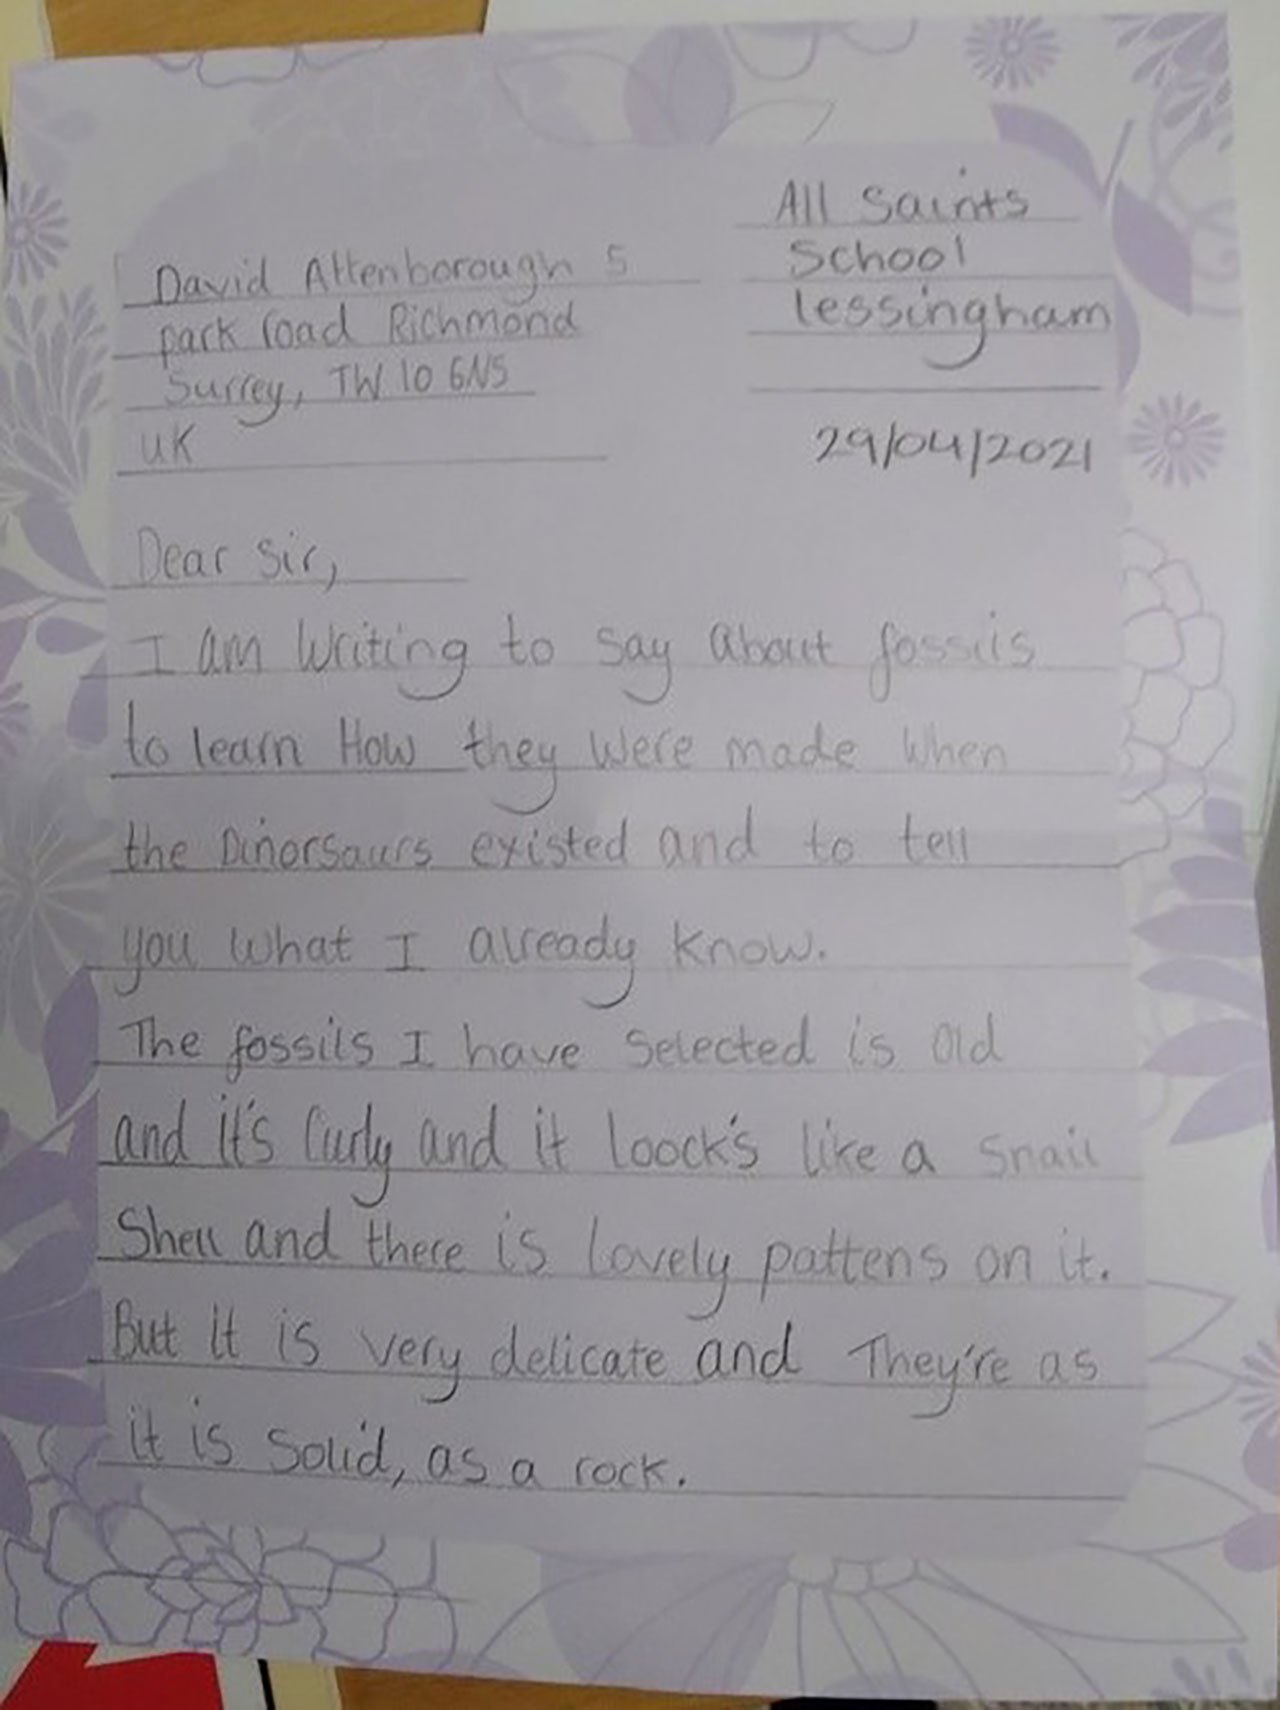 All Saints
School
lessingham
29/04/2021
David Attenborough 5
park road Richmond
Surrey, TW10 6NS
UK
Dear Sir,
I am writing to say about fossils
to learn How they were made when
the Dinorsaurs existed and to tell
you what I already know.
The fossils I have selected is old
and it's Curly and it loock's like a snail
Shell and there is lovely pattens on it.
But it is very delicate and They're as
it is solid, as a rock.